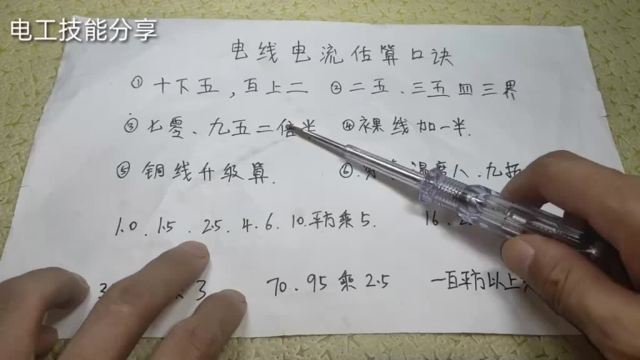 电工技能分享
电线电流估算口诀
①十下五，百上二 ②二五、三五四三界
③七零、九五二倍半 ④裸线加一半.
⑤铜线升级算. ⑥ 温度八、九折
1.0、1.5、2.5、4、6、10平方乘5. 16、2
3 3 70、95乘2.5 一百平方以上